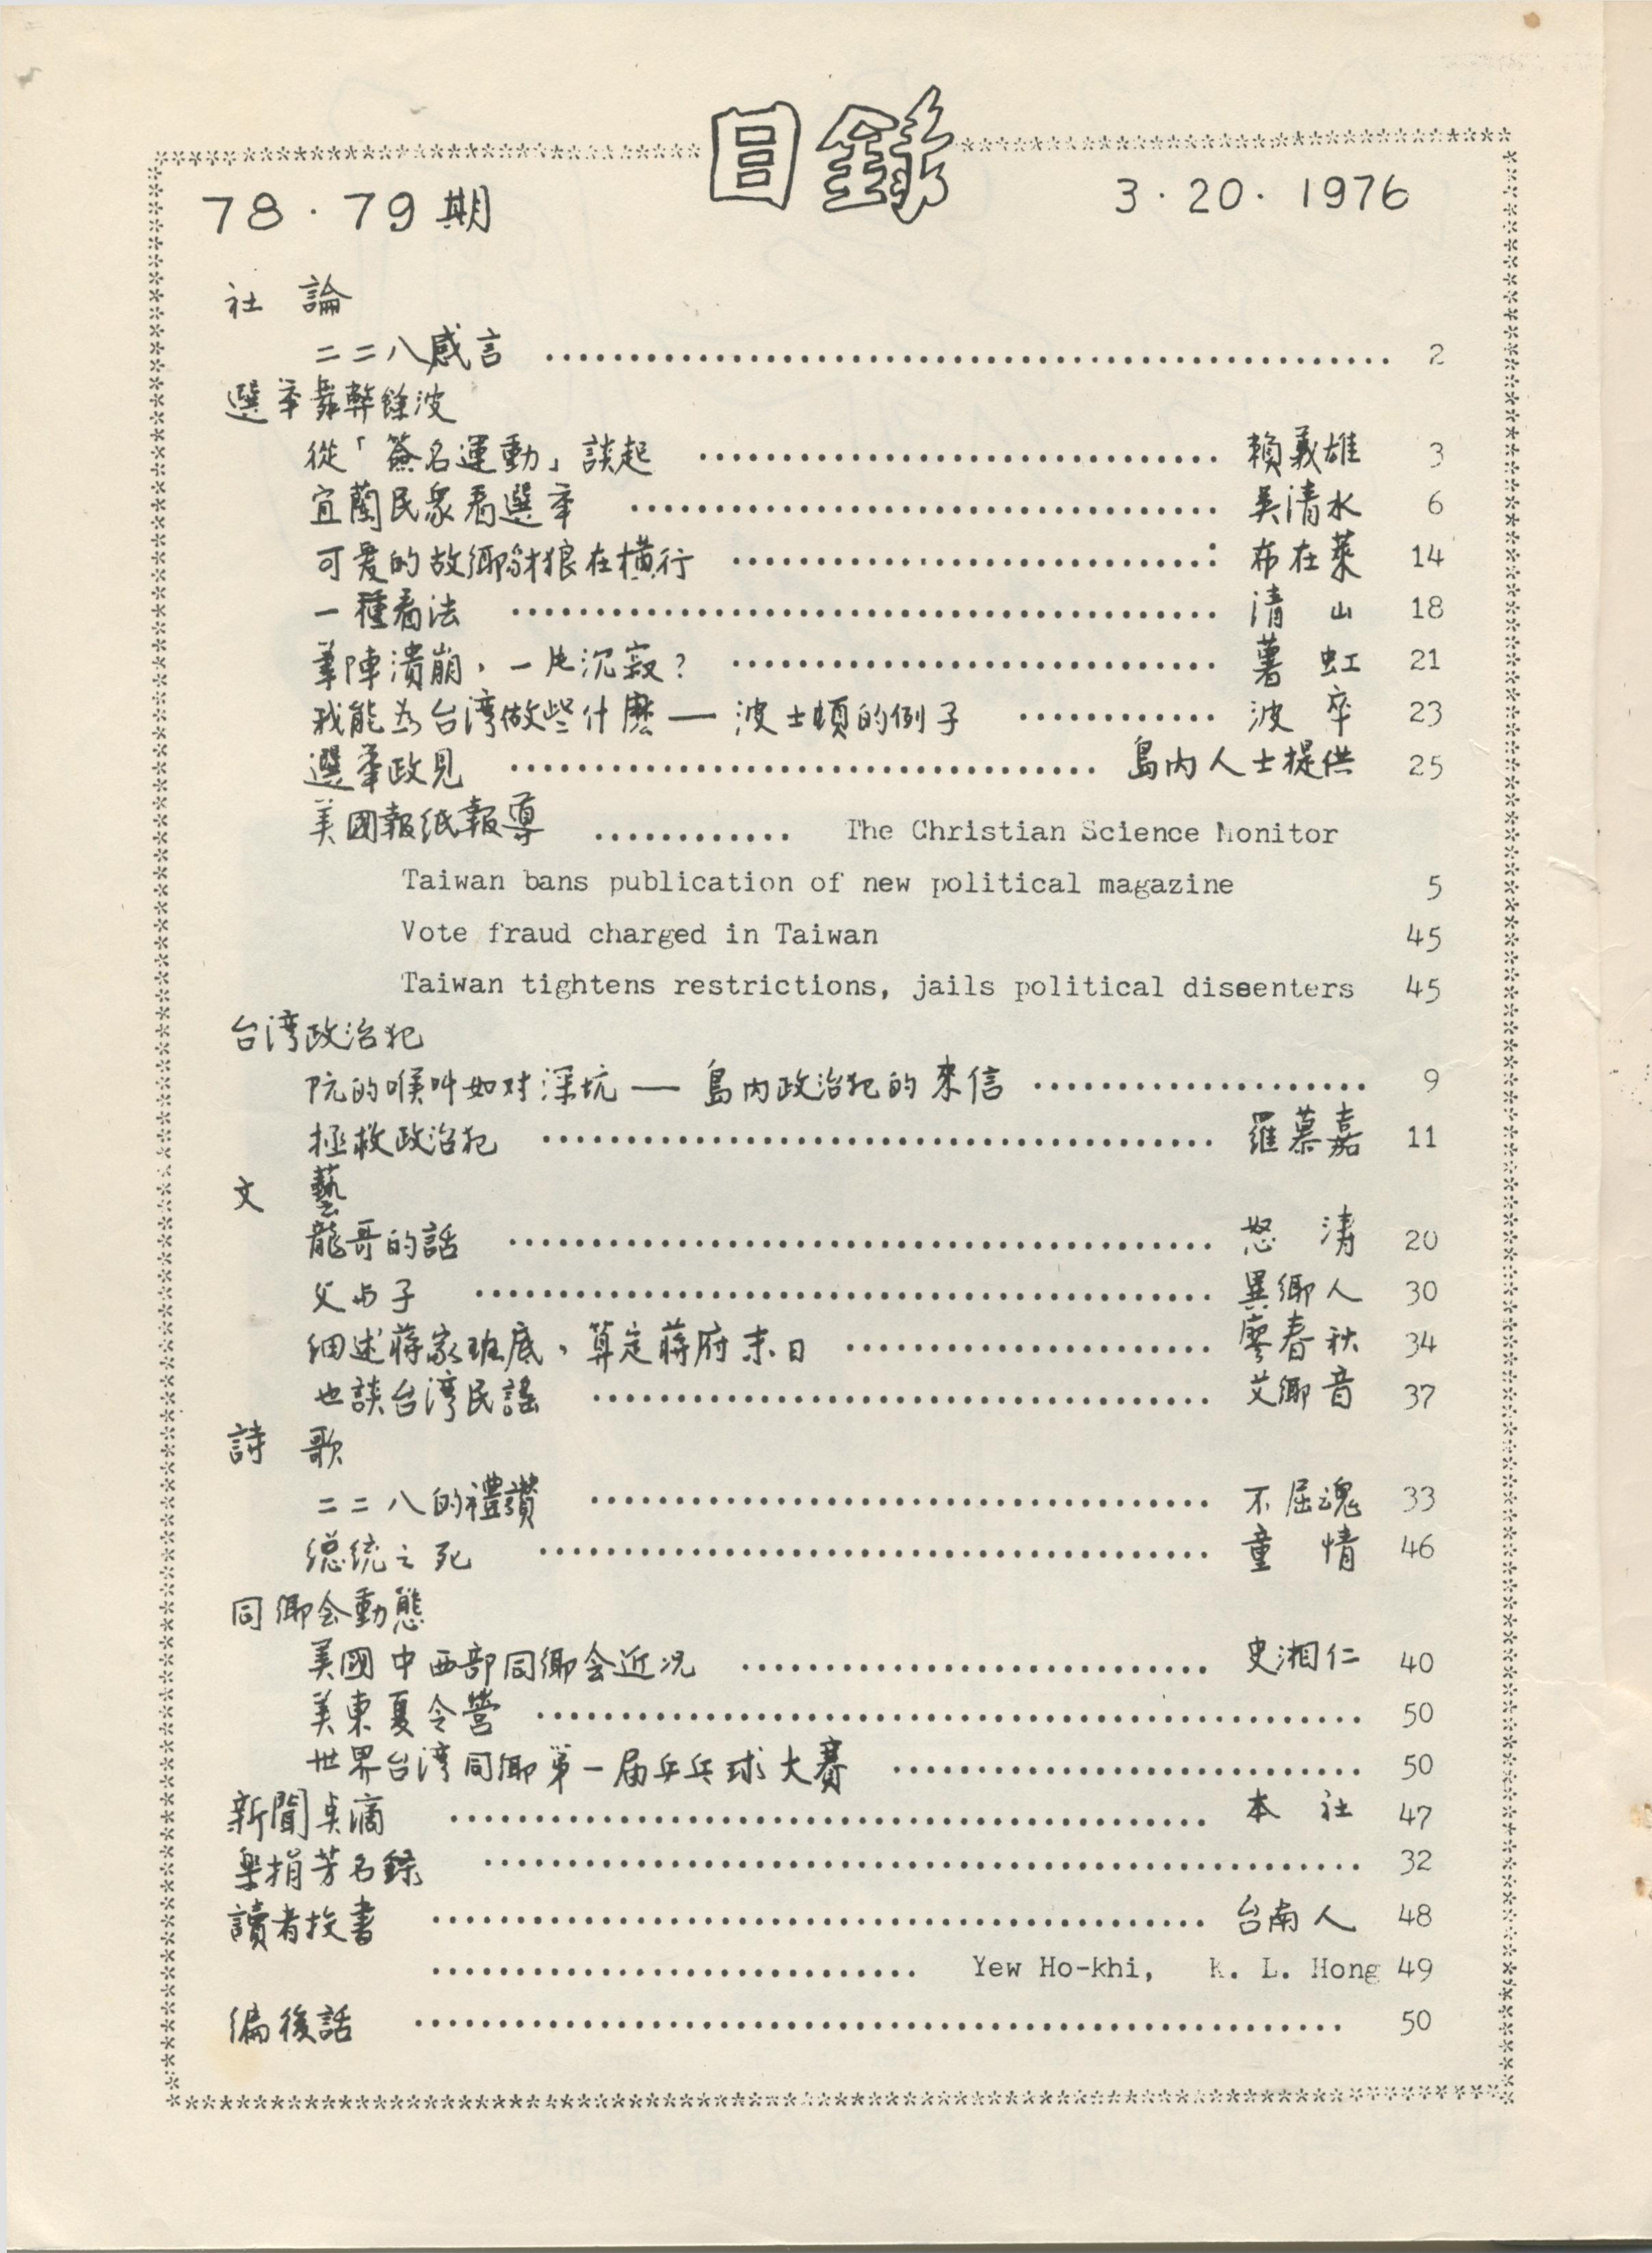 目錄
78·79期 3·20·1976
社 論
二二八感言 ................ 2
選举舞弊餘波
從「簽名運動」談起 ................ 賴義雄 3
宜蘭民眾看選举 ................ 吳清水 6
可爱的故鄉豺狼在横行 ................ 布在萊 14
一種看法 ................ 清 山 18
筆陣潰崩，一片沉寂？ ................ 薯 虹 21
我能为台湾做些什麼——波士頓的例子 ............ 波 卒 23
選举政見 ................ 島內人士提供 25
美國報紙報導 ............ The Christian Science Monitor
Taiwan bans publication of new political magazine 5
Vote fraud charged in Taiwan 45
Taiwan tightens restrictions, jails political disseenters 45
台湾政治犯
阮的喉叫如对深坑——島內政治犯的來信 ................ 9
拯救政治犯 ................ 羅慕嘉 11
文 藝
龍哥的話 ................ 怒 涛 20
父与子 ................ 異鄉人 30
細述蔣家班底，算定蔣府末日 ................ 廖春秋 34
也談台湾民謠 ................ 艾鄉音 37
詩 歌
二二八的禮讚 ................ 不屈魂 33
總统之死 ................ 童 情 46
同鄉会動態
美國中西部同鄉会近况 ................ 史湘仁 40
美東夏令營 ................ 50
世界台湾同鄉第一届乒乓球大賽 ................ 50
新聞点滴 ................ 本 社 47
樂捐芳名錄 ................ 32
讀者投書 ................ 台南人 48
................ Yew Ho-khi, K. L. Hong 49
編後話 ................ 50